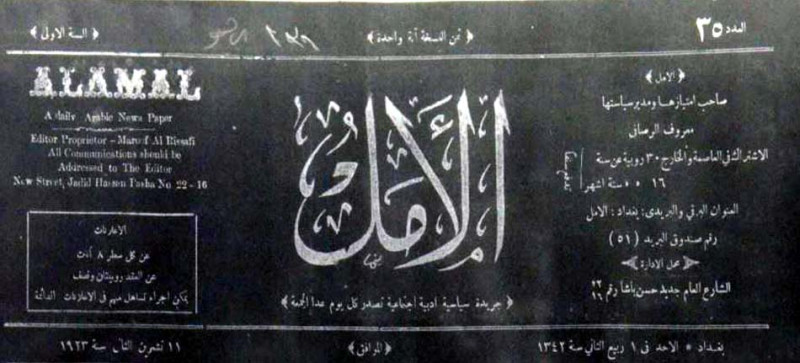 العدد ٣٥
﴿ ثمن النسخة آنة واحدة ﴾
﴿ السنة الاولى ﴾
﴿ الامل ﴾
صاحب امتيازها ومدير سياستها
معروف الرصافى
الاشتراك فى العاصمة والخارج ٣٠ روبية عن سنة
١٦ » » ستة اشهر
العنوان البرقي والبريدى: بغداد: الامل
رقم صندوق البريد (٥١)
محل الادارة
الشارع العام جديد حسن باشا رقم ٢٢/١٦
الأمل
﴿ جريدة سياسية ادبية اجتماعية تصدر كل يوم عدا الجمعة ﴾
ALAMAL
A daily Arabic News Paper
Editor Proprietor - Maroof Al Rissafi
All Communications should be
Addressed to The Editor
New Street, Jadid Hassen Pasha No 22-16
الاعلانات
عن كل سطر ٨ آنات
عن العقد روبيتان ونصف
يمكن اجراء تساهل مهم فى الاعلانات الدائمة
بغداد * الاحد فى ١ ربيع الثاني سنة ١٣٤٢
﴿ الموافق ﴾
١١ تشرين الثاني سنة ١٩٢٣